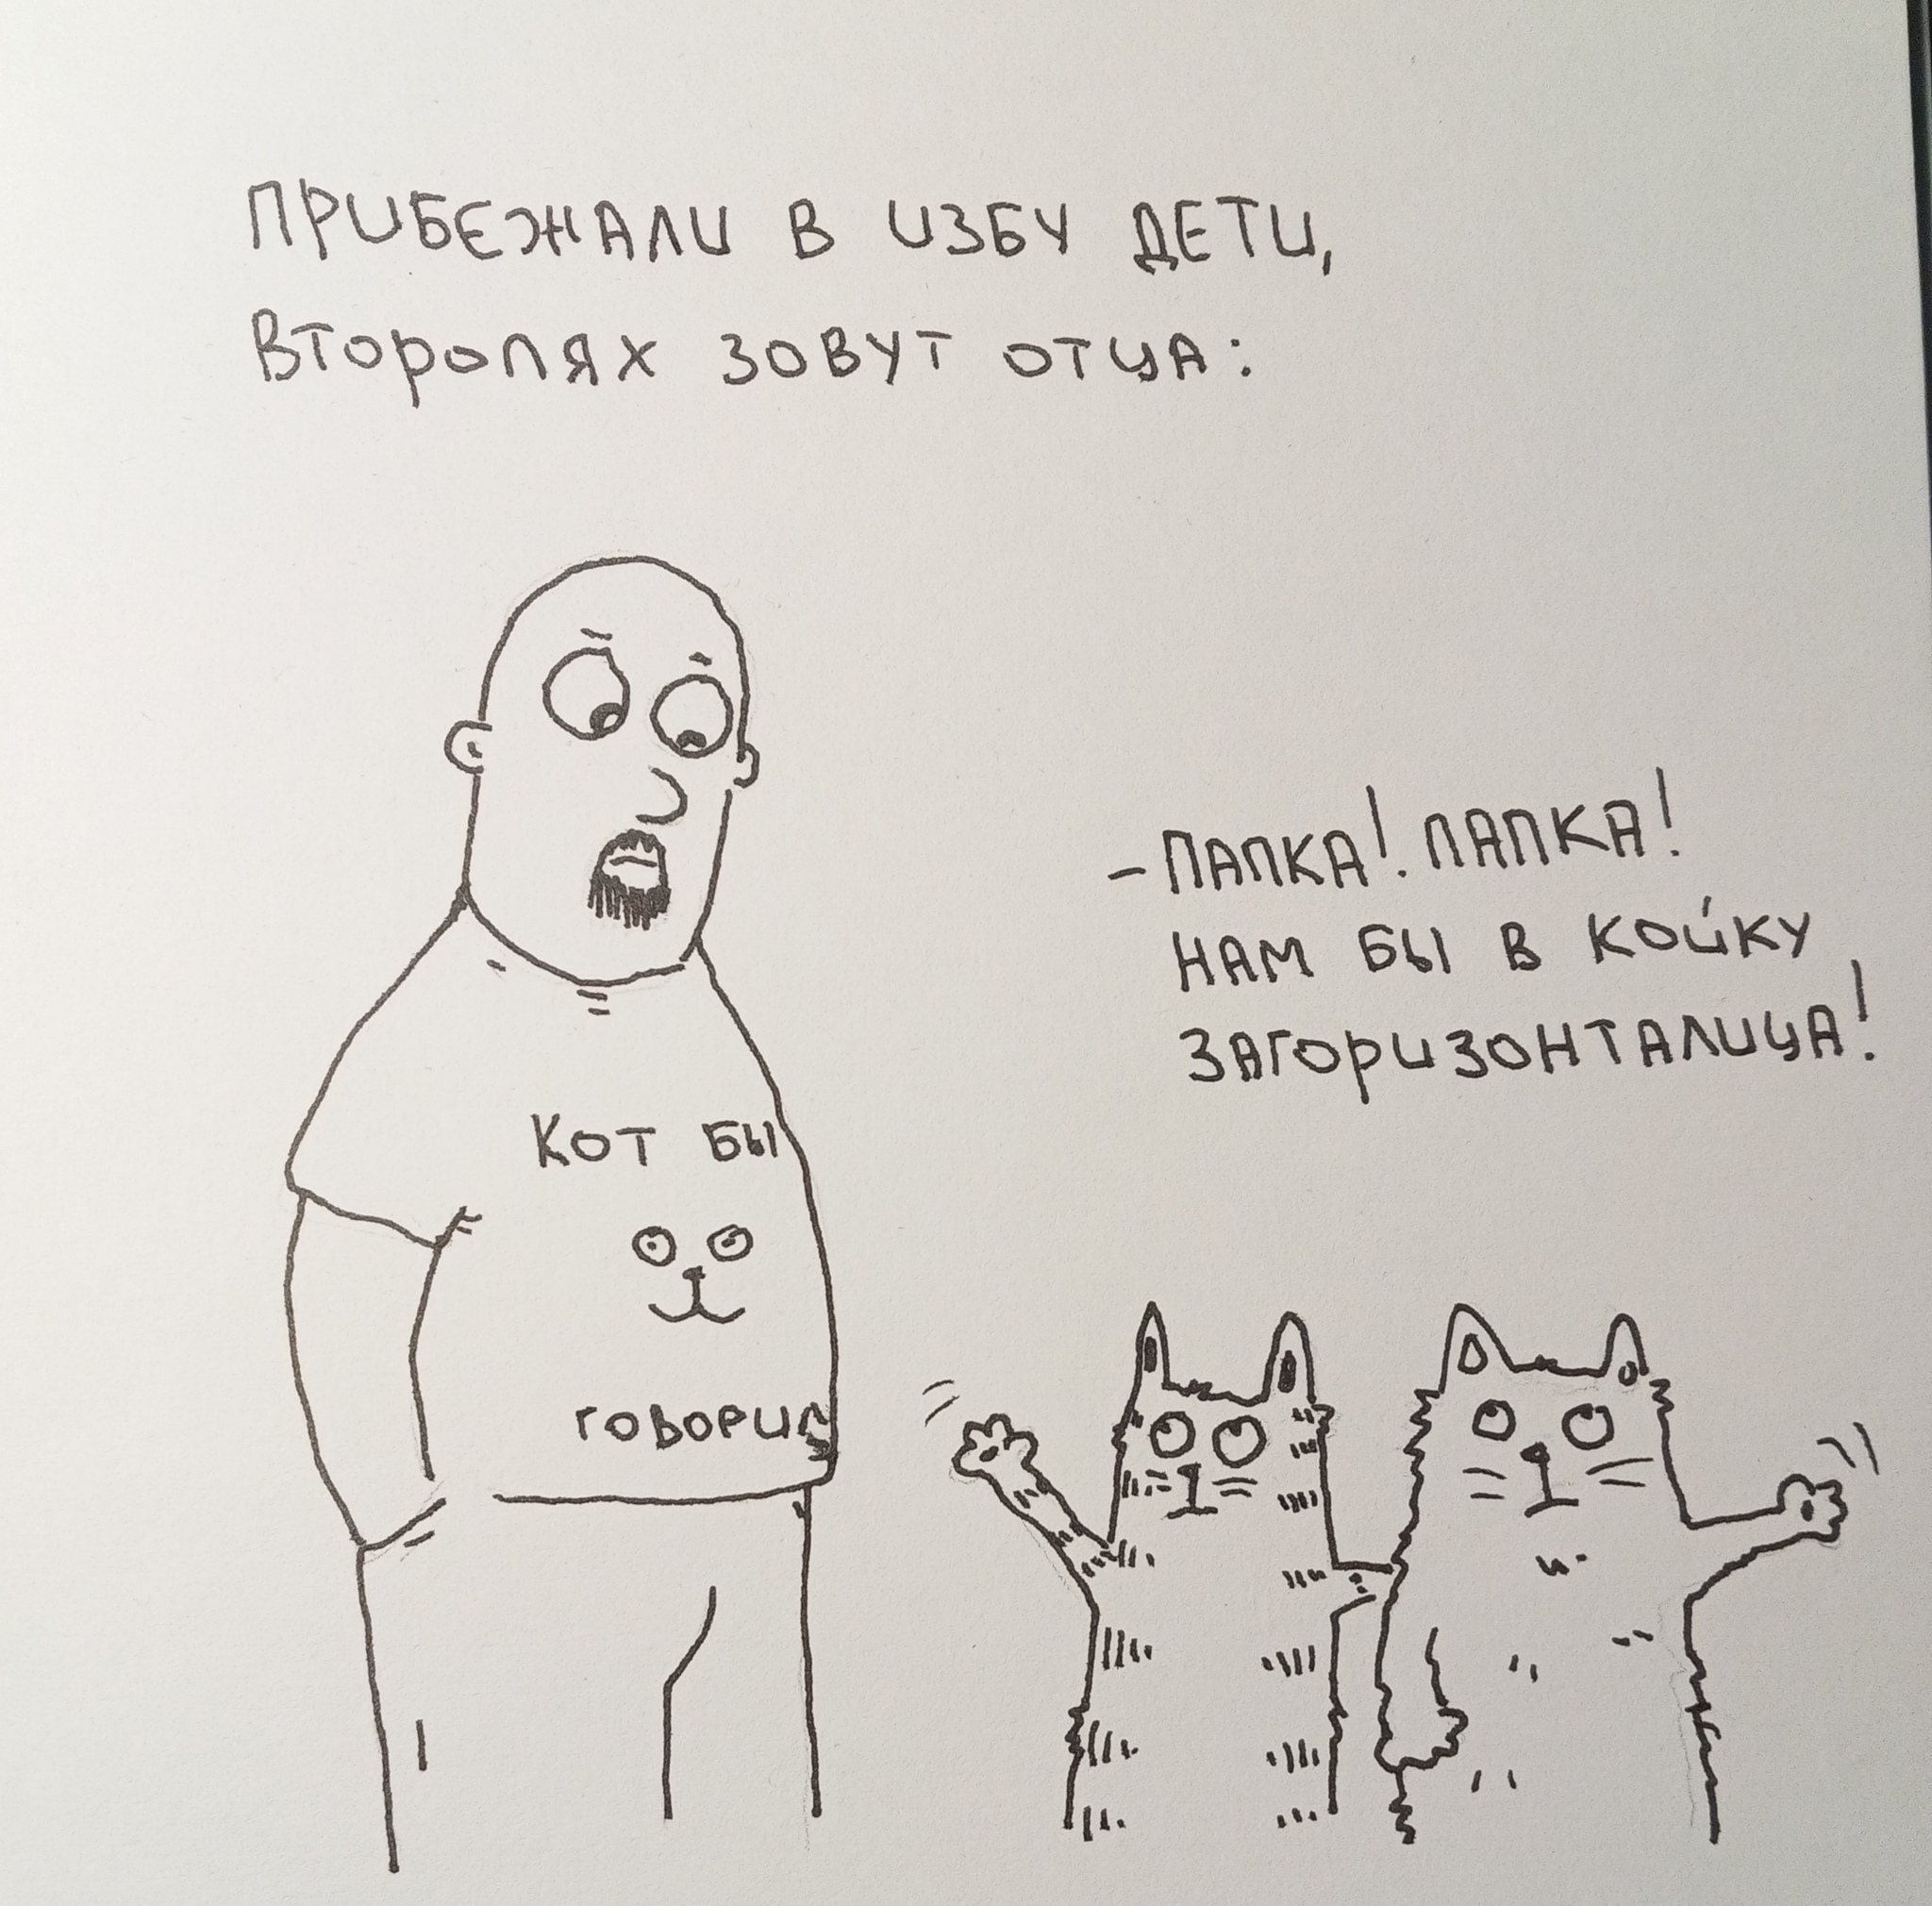 ПРИБЕЖАЛИ В ИЗБУ ДЕТИ,
ВТОРОПЯХ ЗОВУТ ОТЦА:
- ПАПКА! ПАПКА!
НАМ БЫ В КОЙКУ
ЗАГОРИЗОНТАЛИЦА!
КОТ БЫ
ГОВОРИЛ